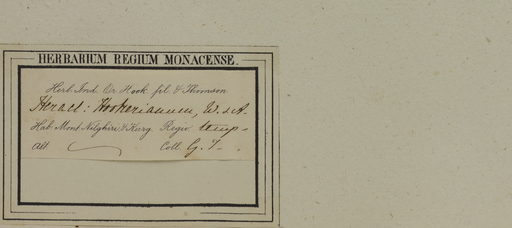 HERBARIUM REGIUM MONACENSE.
Herb. Ind. Or. Hook. fil. & Thomson.
Heracl: Hookerianum, W. & A.
Hab. Mont. Nilghiri & Kurg. Regio temp.
Alt. Coll. G. T.